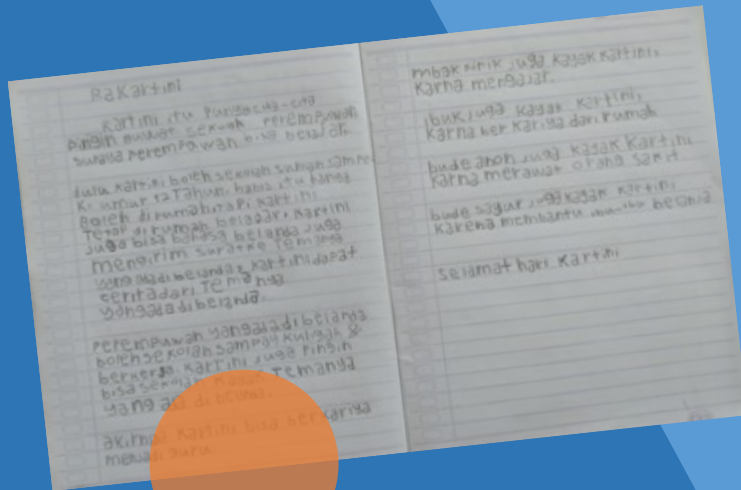 RaKartini
Kartini itu Punya cita-cita
Pingin muwat sekolah Perempuwan
supaya Perempuwan bisa belajar.
dulu Kartini boleh sekolah
umur 12 Tahun, habis itu
Boleh dirumah, tapi Kartini
Tetap dirumah belajar. Kartini
Juga bisa bahasa belanda, Juga
mengirim surat ke Temanya
yang ada di belanda, Kartini dapat
cerita dari Temanya
yang ada di belanda.
Perempuwan yang ada di belanda
boleh sekolah sampay kuliyah &
berkerja. Kartini Juga Pingin
bisa sekolah kayak Temanya
yang ada di
akirnya Kartini bisa berkariya
menjadi guru.
mbak ririk Juga kayak Kartini,
Karna mengajar.
ibuk Juga kayak Kartini,
Karna berkariya dari rumah
bude Juga kayak Kartini
Karna merawat orang sakit
bude sayur Juga kayak Kartini
Karena membantu belanja
selamat hari Kartini